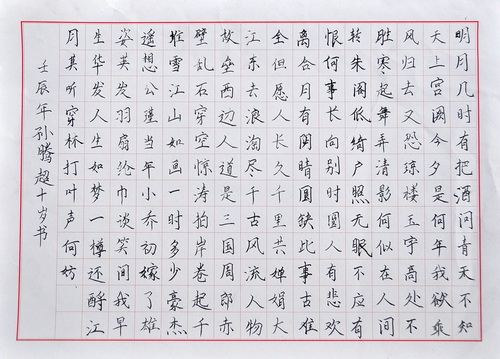 明月几时有把酒问青天不知
天上宫阙今夕是何年我欲乘
风归去又恐琼楼玉宇高处不
胜寒起舞弄清影何似在人间
转朱阁低绮户照无眠不应有
恨何事长向别时圆人有悲欢
离合月有阴晴圆缺此事古难
全但愿人长久千里共婵娟大
江东去浪淘尽千古风流人物
故垒西边人道是三国周郎赤
壁乱石穿空惊涛拍岸卷起千
堆雪江山如画一时多少豪杰
遥想公瑾当年小乔初嫁了雄
姿英发羽扇纶巾谈笑间我早
生华发人生如梦一樽还酹江
月莫听穿林打叶声何妨
壬辰年孙腾超十岁书